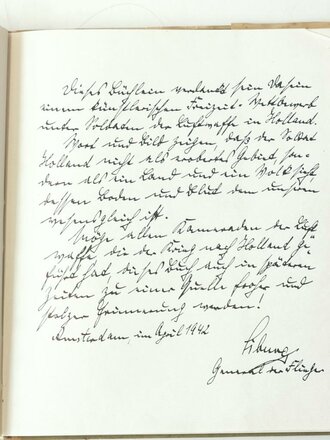 Dieses Büchlein verdankt sein Dasein
einem künstlerischen Freizeit-Wettbewerb
unter Soldaten der Luftwaffe in Holland.
Wort und Bild zeigen, daß der Soldat
Holland nicht als erobertes Gebiet, son-
dern als ein Land und ein Volk sieht
dessen Boden und Blut dem unsren
wesensgleich ist.
Möge allen Kameraden der Luft-
waffe, die der Krieg nach Holland ge-
führt hat, dieses Buch auch in späteren
Zeiten zu einer Quelle froher und
stolzer Erinnerung werden!
Amsterdam, im April 1942
Siburg
General der Flieger